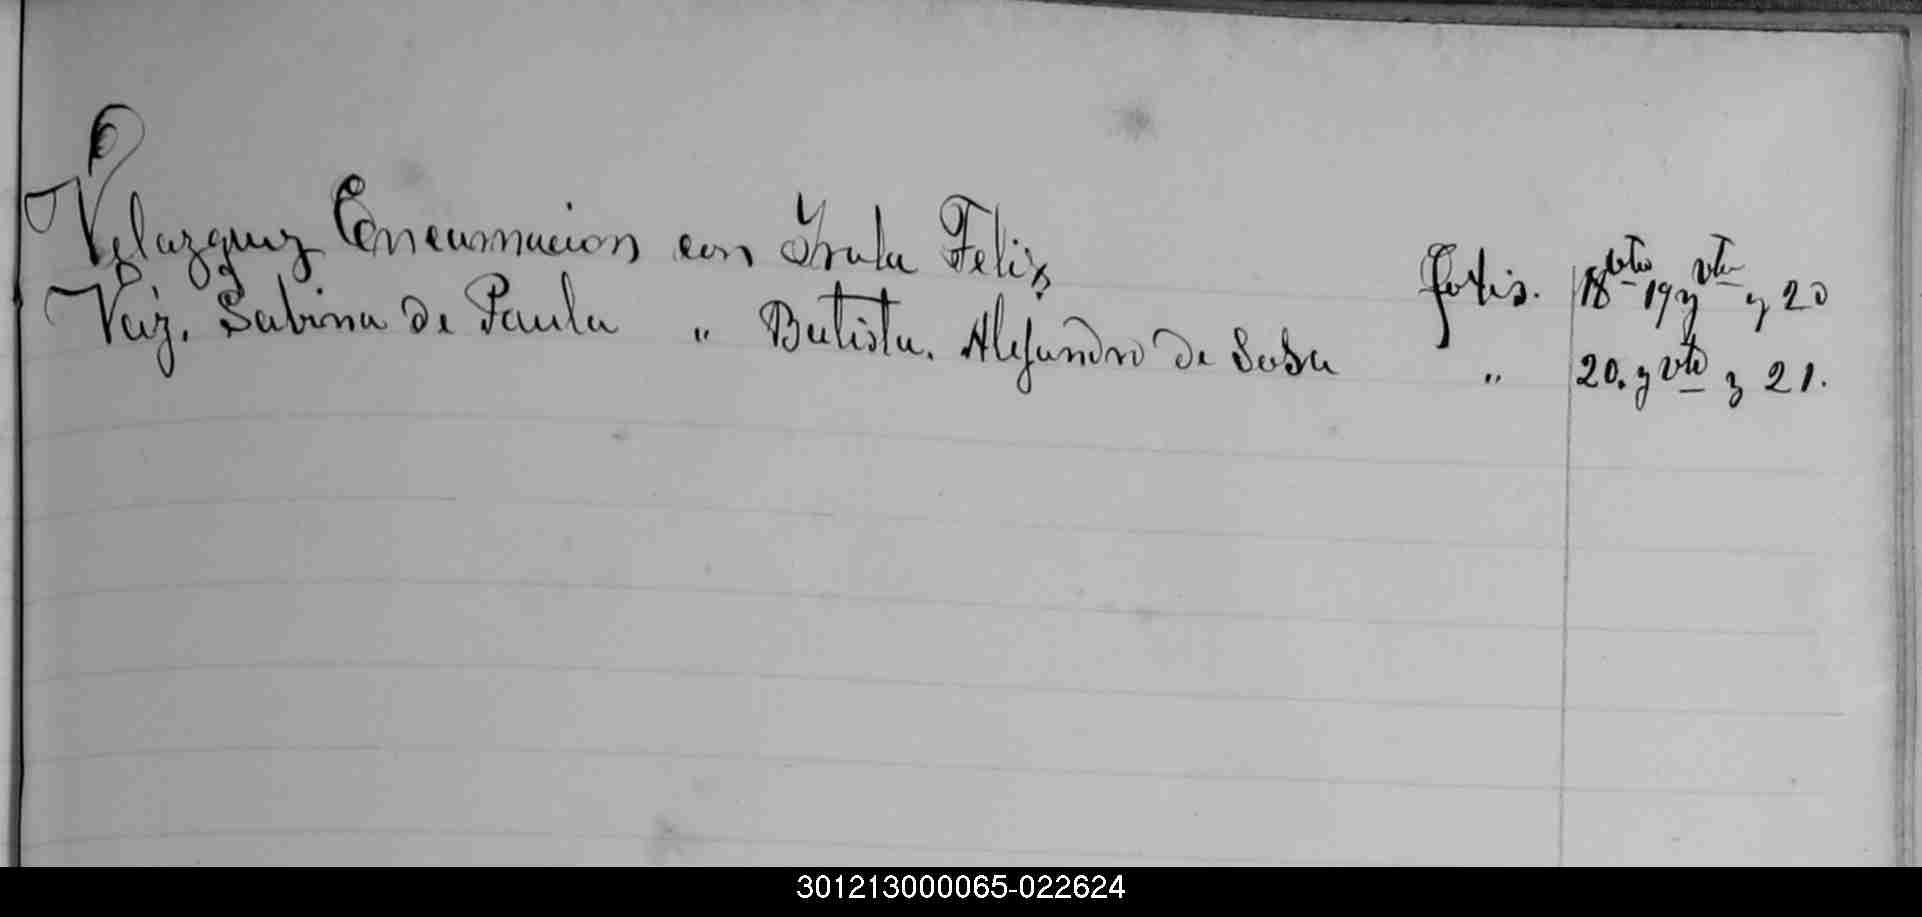 Velazquez Encarnacion con Irala Felix folis. 18 vto 19 y vto y 20
Vaz. Sabina de Paula " Batista. Alejandro de Sosa " 20. y vto y 21.
301213000065-022624